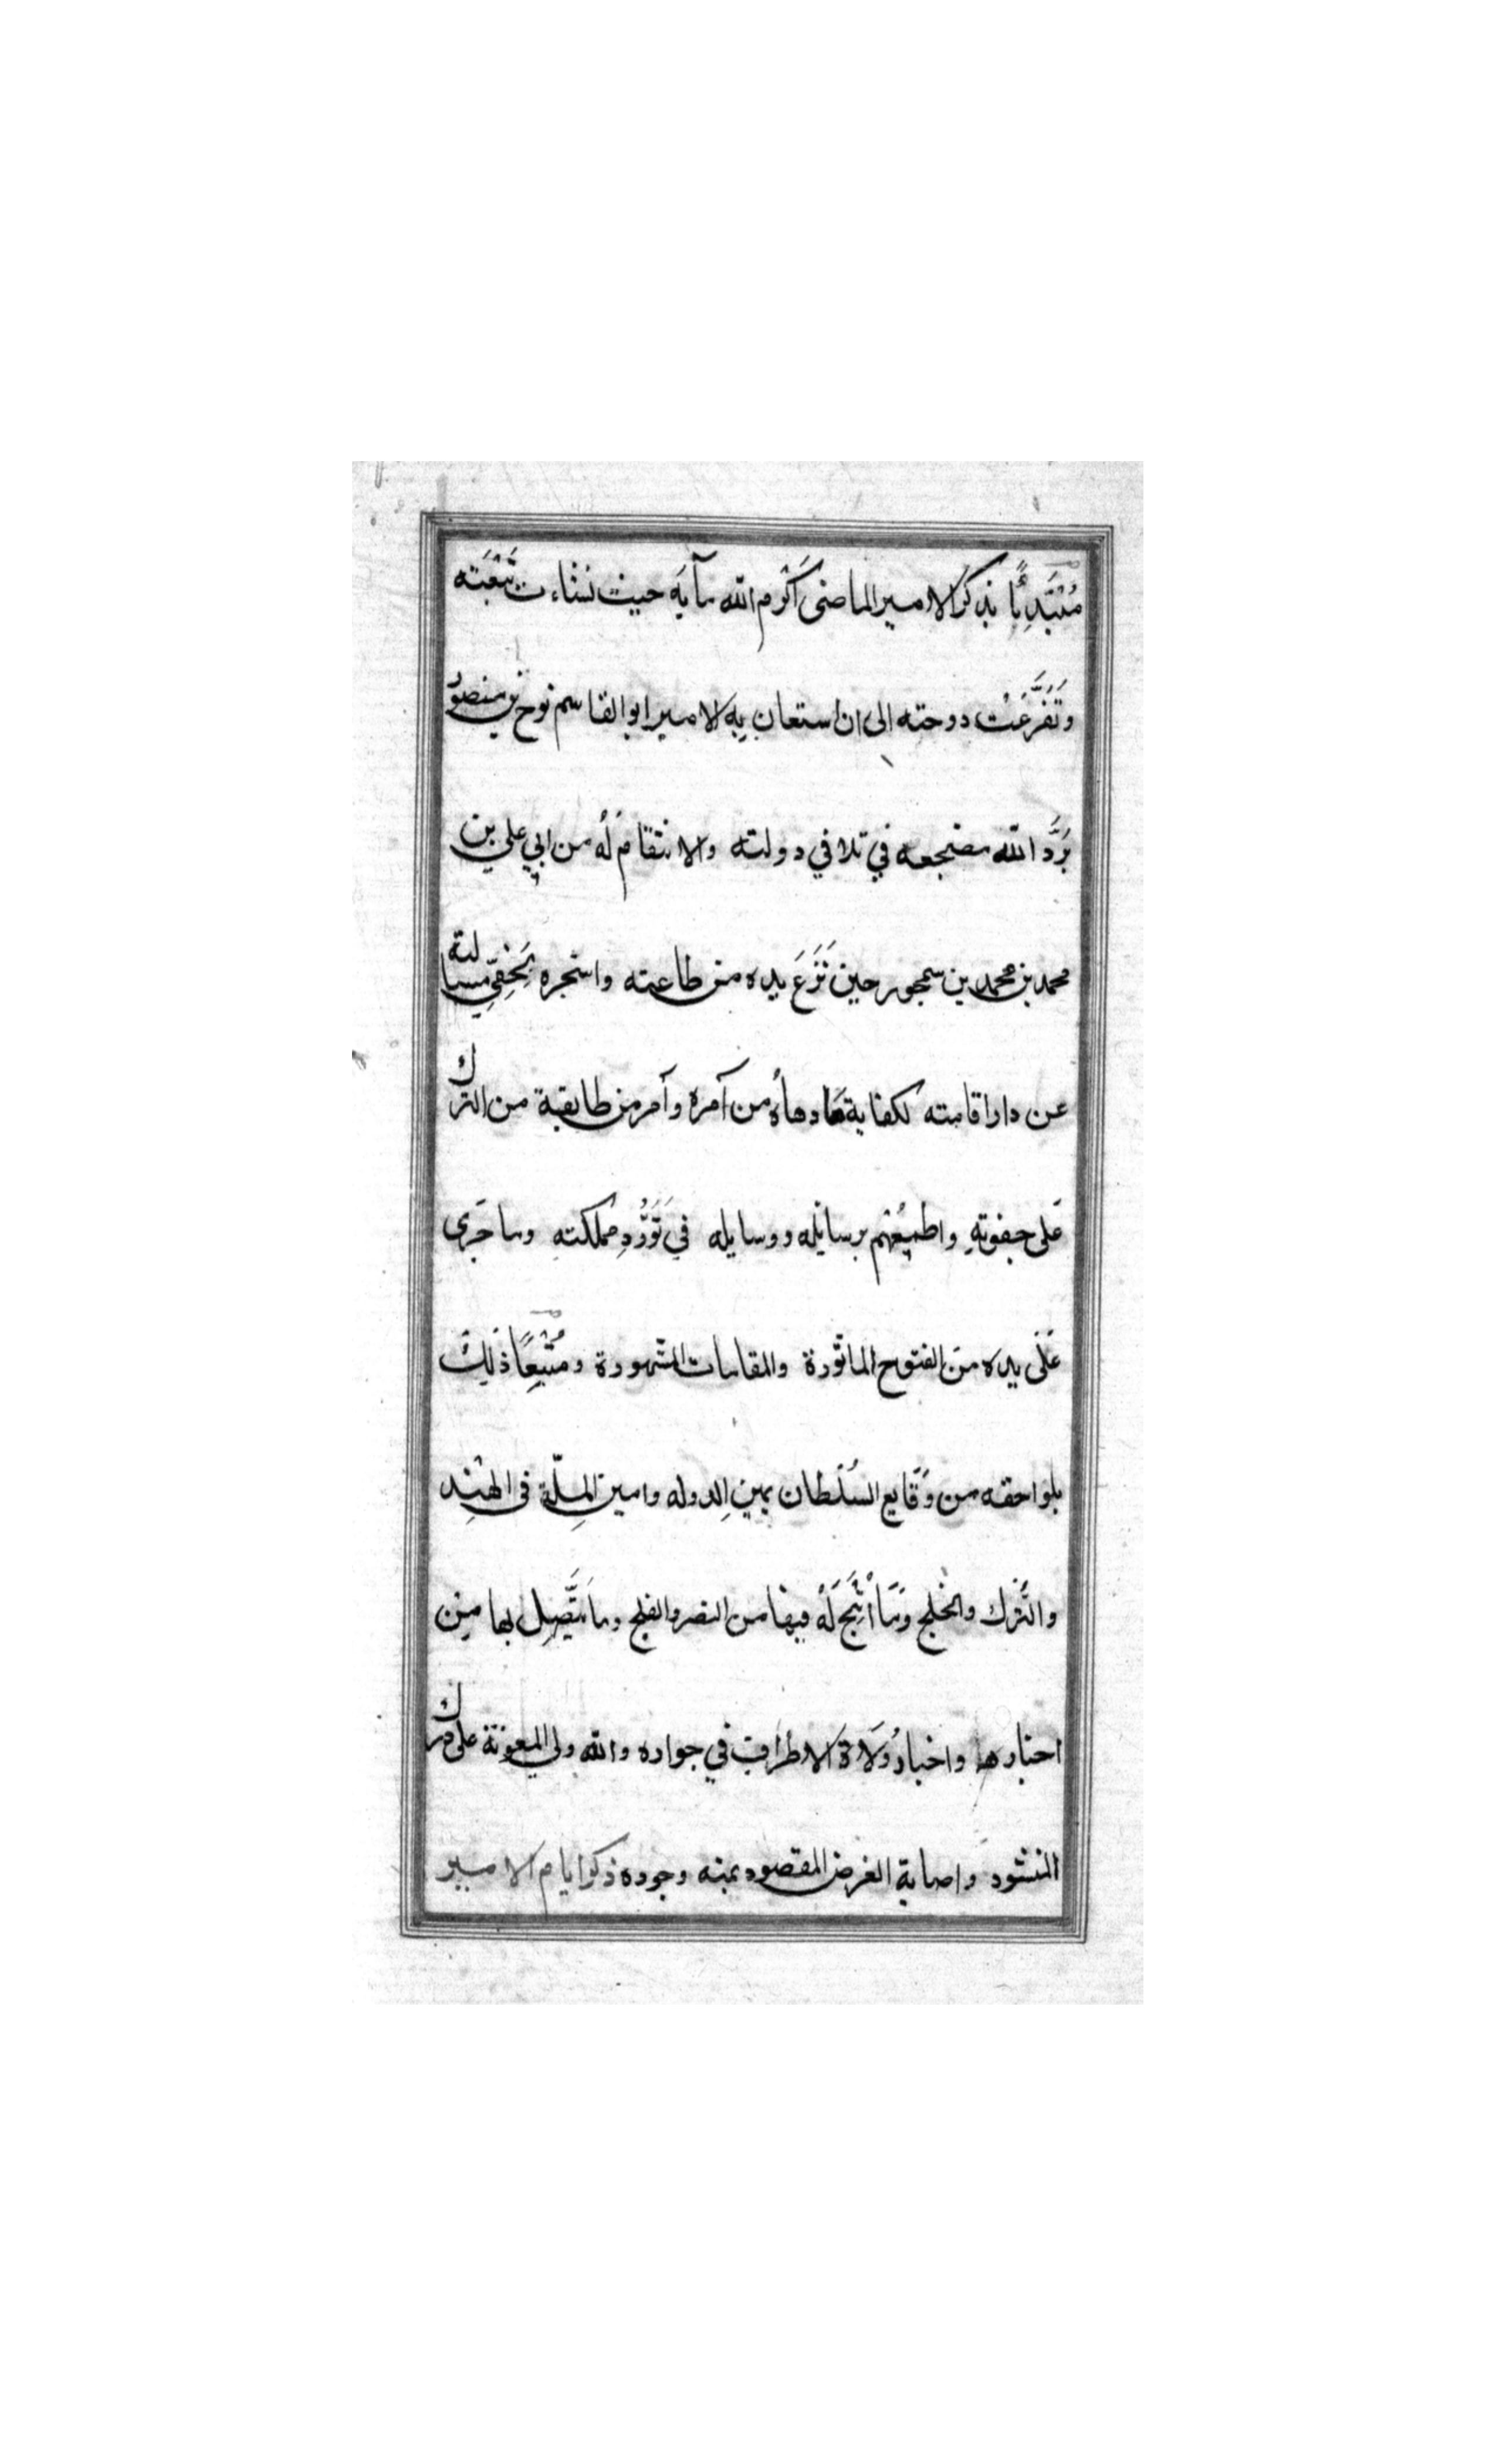 مُبْتَدِئًا بذكر الامير الماضى اَكْرم الله مآبَه حيث نشاءت نَبْعَته
وَتَفَرَّعَتْ دوحته الى ان استعان بِه الامير ابو القاسم نوح بن منصور
بَرَّد الله مضجعه في تلافي دولته والانتقام لَهُ من ابي علي بن
محمد بن محمد بن سمجور حين نَزَعَ يده من طاعته وا بِخَفِيِّ مسالته
عن دار اقامته لكفاية ما دهاهُ من آمره وآمر من طابقه من الترك
عَلى جفوتهِ واطمعُهم برسائله ووسايله في تَوَرُّدِ مملكتهِ وما جَرى
عَلَى يده مِنَ الفتوح الماثورة والمقامات المشهورة ومُتْبِعًا ذَلِكَ
بلواحقه من وَقَايع السُلطان يمين الدوله وامين المِلّة فى الهند
والتُرك والخلج وَمَا أُنْتِجَ لَهُ فيها من النصر والفلج وما يَتَّصِل بها مِن
اخبارها واخبارُ وَلَاة الاطراف في جواره والله ولي المعونة على درك
المنشود واصابة الغرض المقصود بمنه وجوده ذكر ايام الامير